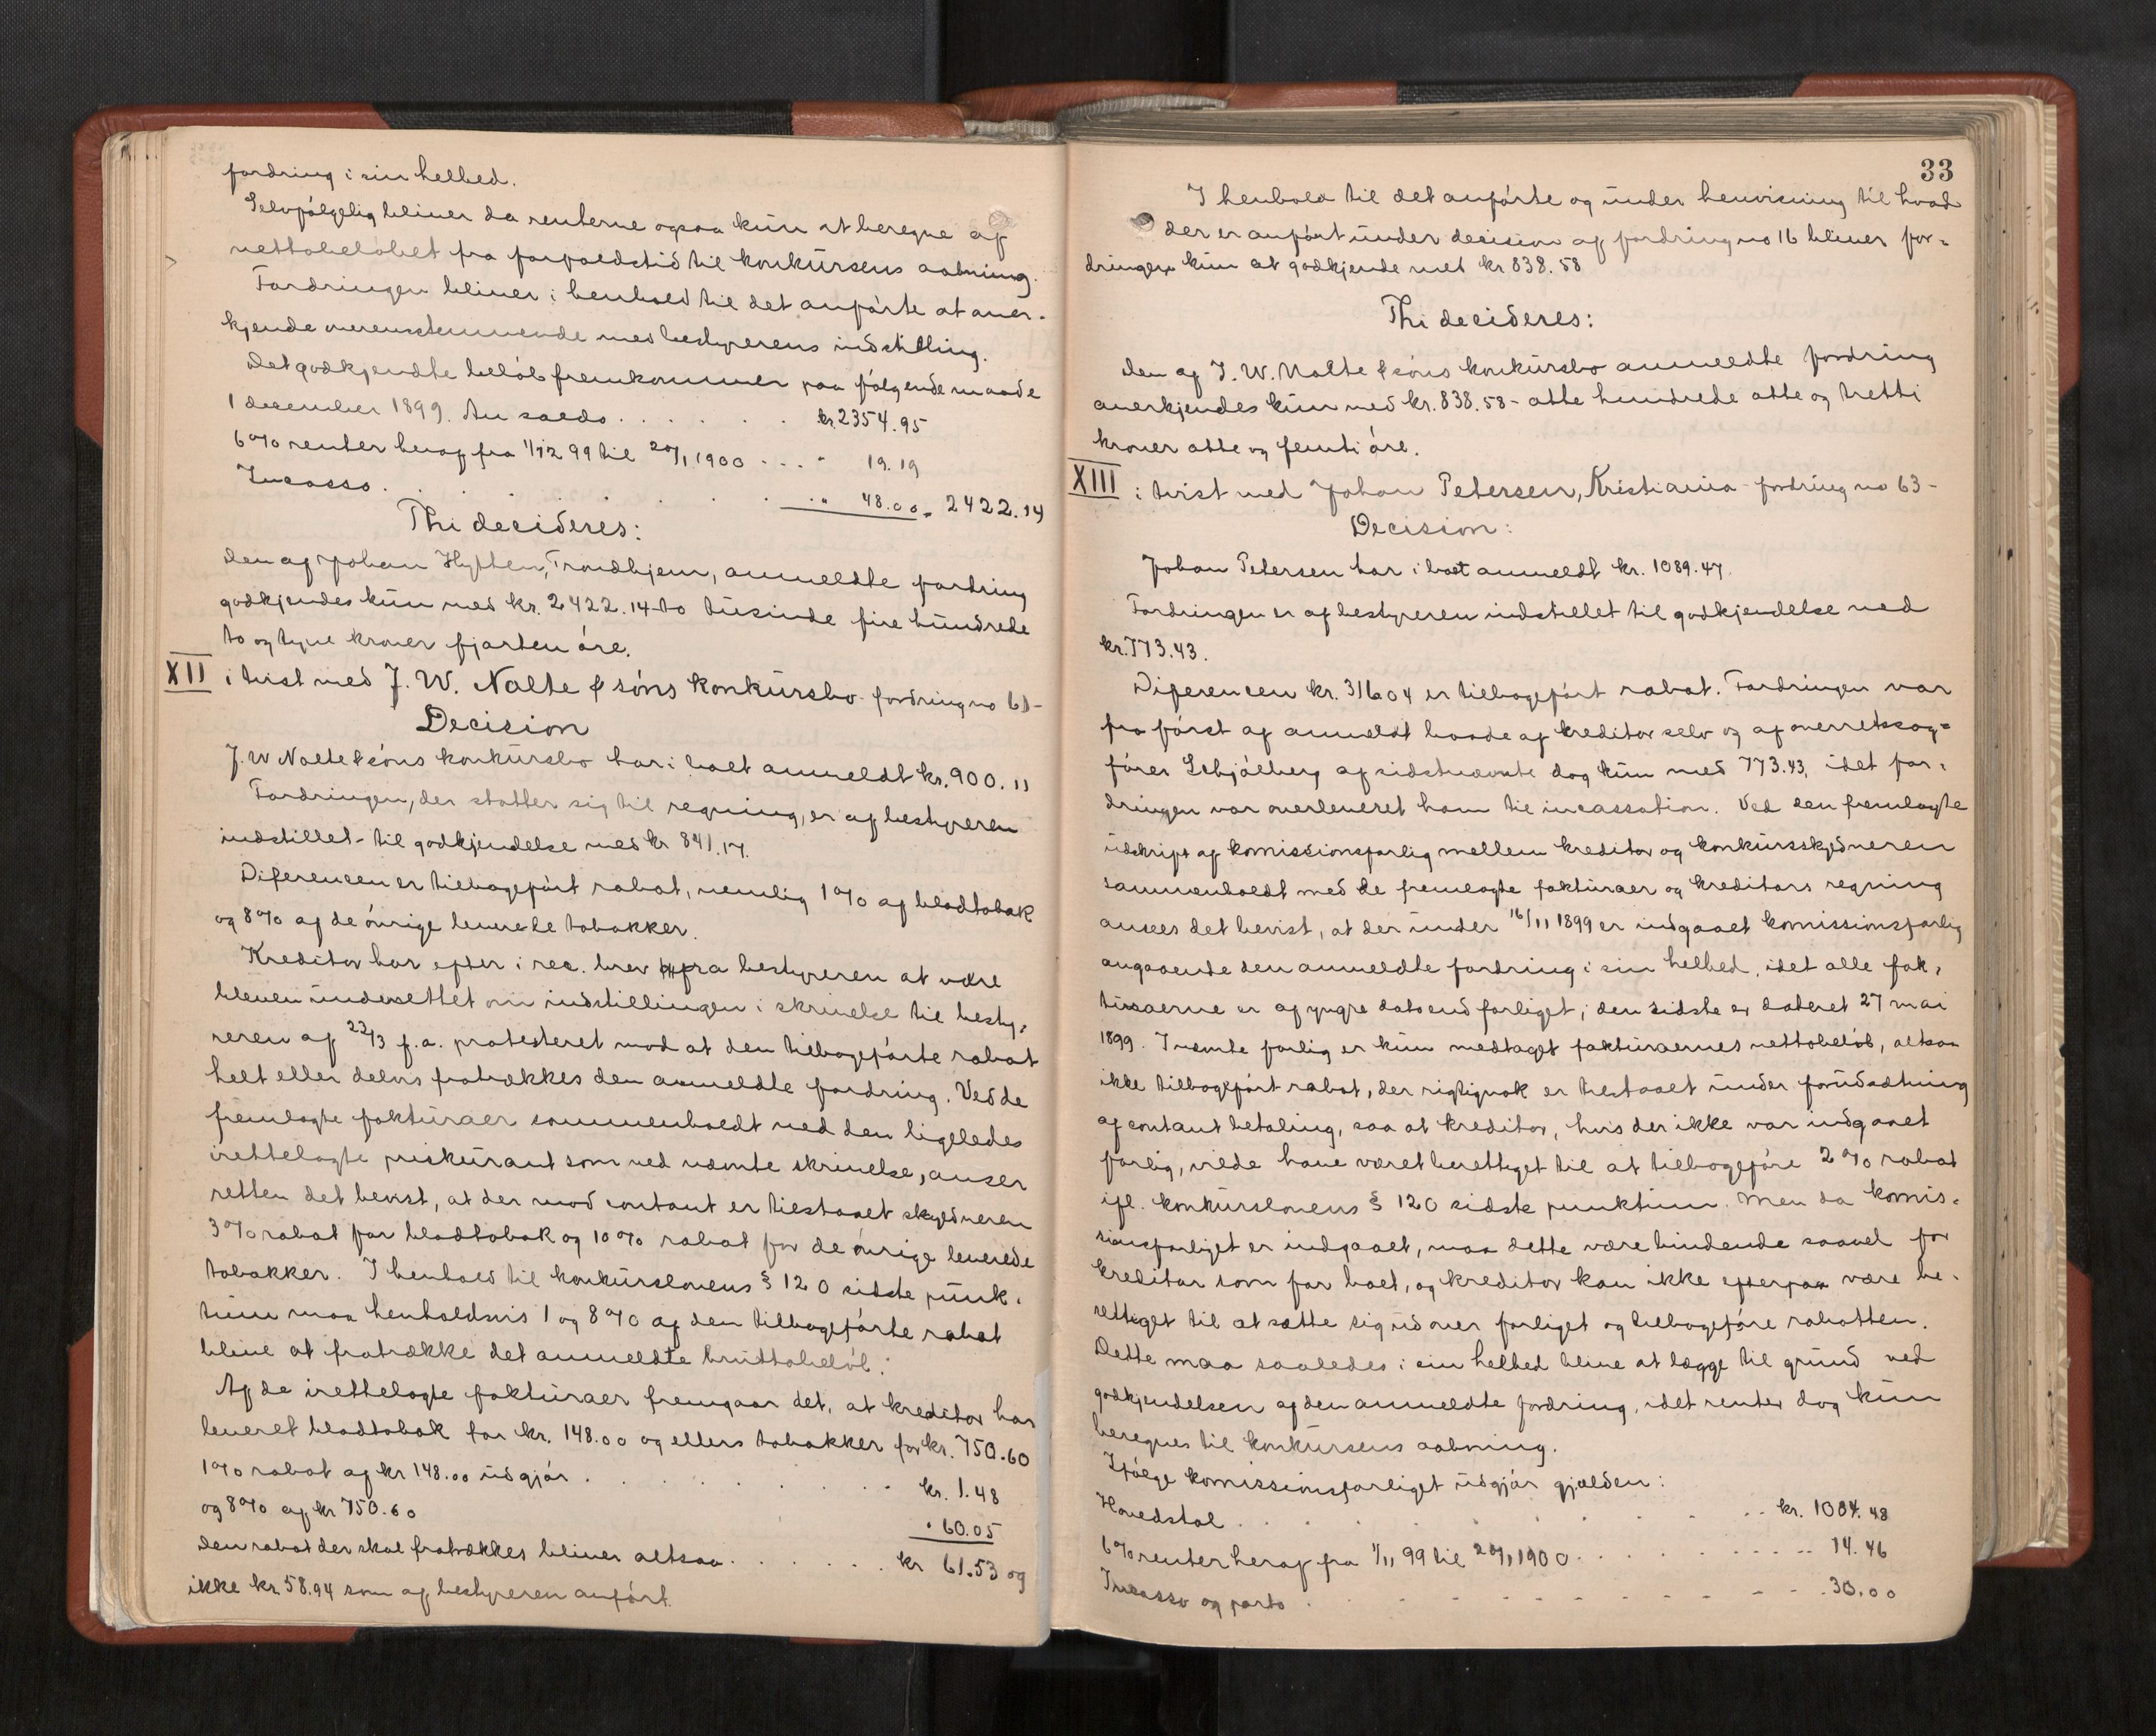 fordring i sin helhed.
Selvfølgelig bliver da renterne ogsaa kun at beregne af
nettobeløbet fra forfaldstid til konkursens aabning.
Fordringen bliver i henhold til det anførte at aner-
kjende overensstemmende med bestyrerens indstilling.
Det godkjendte beløb fremkommer paa følgende maade
1 december 1899. An saldo . . . . . . kr. 2354.95
6% renter heraf fra 1/12 99 til 20/1 1900 . . . " 19.19
Incasso . . . . . . . . . " 48.00 = 2422.14
Thi decideres:
Den af Johan Hythen, Trondhjem, anmeldte fordring
godkjendes kun med kr. 2422.14 to tusinde fire hundrede
to og tyve kroner fjorten øre.
XII i tvist med J. W. Nolte & søns konkursbo fordring no 61-
Decision
J. W Nolte & søns konkursbo har i boet anmeldt kr. 900.11
Fordringen, der støtter sig til regning, er af bestyreren
indstillet til godkjendelse med kr 841.17.
Diferencen er tilbageført rabat, nemlig 1% af bladtobak
og 8% af de øvrige leverede tobakker.
Kreditor har efter i rec. brev fra bestyreren at være
bleven underrettet om indstillingen i skrivelse til besty-
reren af 22/3 f.a. protesteret mod at den tilbageførte rabat
helt eller delvis fratrækkes den anmeldte fordring. Ved de
fremlagte fakturaer sammenholdt med den ligeledes
irettelagte priskurant som ved nævnte skrivelse, anser
retten det bevist, at der mod contant er tilstaaet skyldneren
3% rabat for bladtobak og 10% rabat for de øvrige leverede
tobakker. I henhold til konkurslovens § 120 sidste punk-
tum maa henholdsvis 1 og 8% af den tilbageførte rabat
blive at fratrække det anmeldte bruttobeløb.
Af de irettelagte fakturaer fremgaar det, at kreditor har
leveret bladtobak for kr. 148.00 og ellers tobakker for kr. 750.60
1% rabat af kr 148.00 udgjør . . . . . . . kr. 1.48
og 8% af kr 750.60 " 60.05
Den rabat der skal fratrækkes bliver altsaa . . . . . . kr 61.53 og
ikke kr. 58.94 som af bestyreren anført.
33
I henhold til det anførte og under henvisning til hvad
der er anført under decision af fordring no 16 bliver for-
dringen kun at godkjende med kr 838.58
Thi decideres:
Den af J. W. Nolte & søns konkursbo anmeldte fordring
anerkjendes kun med kr. 838.58 - otte hundrede otte og tretti
kroner otte og femti øre.
XIII i tvist med Johan Petersen, Kristiania fordring no 63-
Decision:
Johan Petersen har i boet anmeldt kr. 1089.47.
Fordringen er af bestyreren indstillet til godkjendelse med
kr. 773.43.
Diferencen kr. 316.04 er tilbageført rabat. Fordringen var
fra først af anmeldt baade af kreditor selv og af overretssag-
fører Schjølberg af sidstnævnte dog kun med 773.43, idet for-
dringen var overleveret ham til incassation. Ved den fremlagte
udskrift af komissionsforlig mellem kreditor og konkursskyldneren
sammenholdt med de fremlagte fakturaer og kreditors regning
ansees det bevist, at der under 16/11 1899 er indgaaet komissionsforlig
angaaende den anmeldte fordring i sin helhed, idet alle fak-
turaerne er af yngre dato end forliget; den sidste er dateret 27 mai
1899. I nævnte forlig er kun medtaget fakturaernes nettobeløb, altsaa
ikke tilbageført rabat, der rigtignok er tilstaaet under forudsætning
af contant betaling, saa at kreditor, hvis der ikke var indgaaet
forlig, vilde have været berettiget til at tilbageføre 2% rabat
ifl. konkurslovens § 120 sidste punktum. Men da komis-
sionsforliget er indgaaet, maa dette være bindende saavel for
kreditor som for boet, og kreditor kan ikke efterpaa være be-
rettiget til at sætte sig ud over forliget og tilbageføre rabatten.
Dette maa saaledes i sin helhed blive at lægge til grund ved
godkjendelsen af den anmeldte fordring, idet renter dog kun
beregnes til konkursens aabning.
Ifølge komissionsforliget udgjør gjælden:
Hovedstol . . . . . . . . kr. 1084.48
6% renter heraf fra 1/11 99 til 20/1 1900 . . . . . . . . 14.46
Incasso og porto . . . . . . . . . 30.00